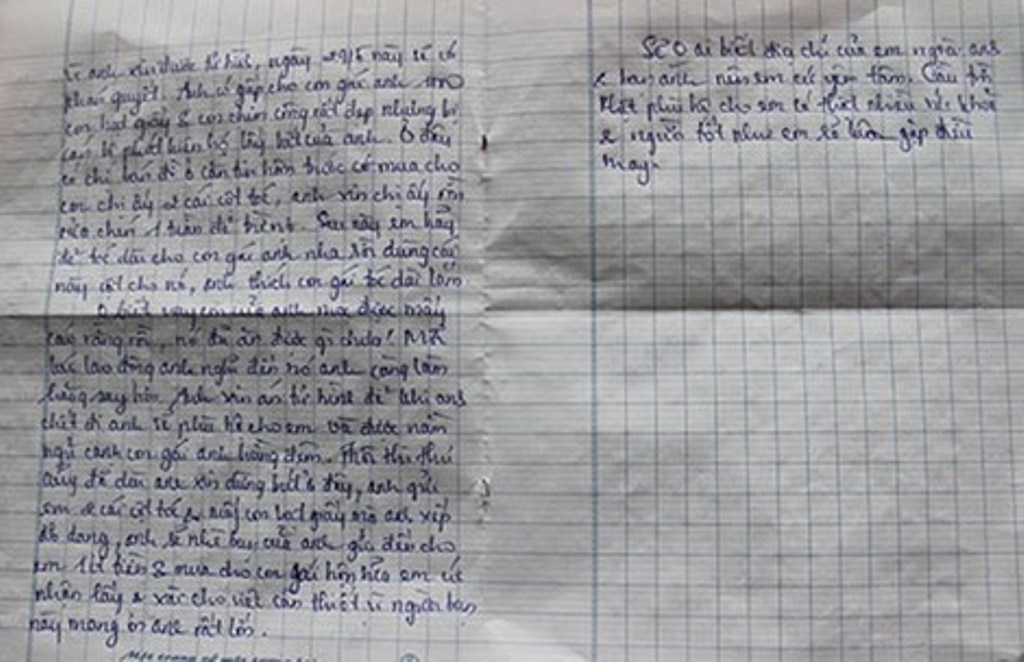 anh xin được tử hình, ngày 29/5 này sẽ có
phán quyết. Anh có gấp cho con gái anh 1000
con hạc giấy & con chim công rất đẹp nhưng bị
cán bộ phát hiện họ lấy hết của anh. Ở đây
có chị bán đồ ở căn tin hôm trước có mua cho
con chị ấy 2 cái cột tóc, anh xin chị ấy rồi
chị 1 Sau này em hãy
để tóc dài cho con gái anh nha rồi dùng cái
này cột cho nó, anh thích con gái tóc dài lắm
Ô biết nay con của anh mọc được mấy
cái răng rồi, nó đã ăn được gì chưa! Mỗi
lúc lao động anh nghĩ đến nó anh càng làm
hăng say hơn. Anh xin án tử hình để khi anh
chết đi anh sẽ phù hộ cho em và được nằm
ngủ cạnh con gái anh hằng đêm. Thôi thư
cũng đã dài anh xin dừng bút ở đây, anh gửi
em 2 cái cột tóc & mấy con hạc giấy mà anh xếp
dở dang, anh sẽ nhờ bạn của anh gửi đến cho
em 1 ít tiền & mua cho con gái hộp sữa em cứ
nhận lấy & xài cho việc cần thiết vì người bạn
này mang ơn anh rất lớn.
Sẽ ô ai biết địa chỉ của em ngoài anh
& bạn anh nên em cứ yên tâm. Cầu trời
Phật phù hộ cho em có thật nhiều sức khỏe
& người tốt như em sẽ luôn gặp điều
may.